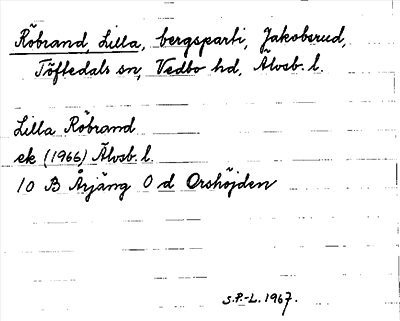 Röbrand, Lilla, bergsparti, Jakobsrud,
Töftedals sn, Vedbo hd, Älvsb. l.
Lilla Röbrand
ek (1966) Älvsb. l.
10 B Årjäng 0 d Orshöjden
S.P.-L. 1967.